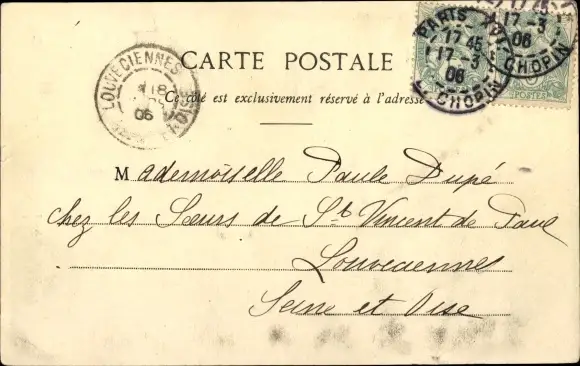 CARTE POSTALE
Ce côté est exclusivement réservé à l'adresse
PARIS
17 45
17 - 3
06
R. CHOPIN
17 45
17 - 3
06
CHOPIN
POSTES
LOUVECIENNES
18
06
Mademoiselle Paule Dupé
chez les Sœurs de St Vincent de Paul
Louveciennes
Seine et Oise